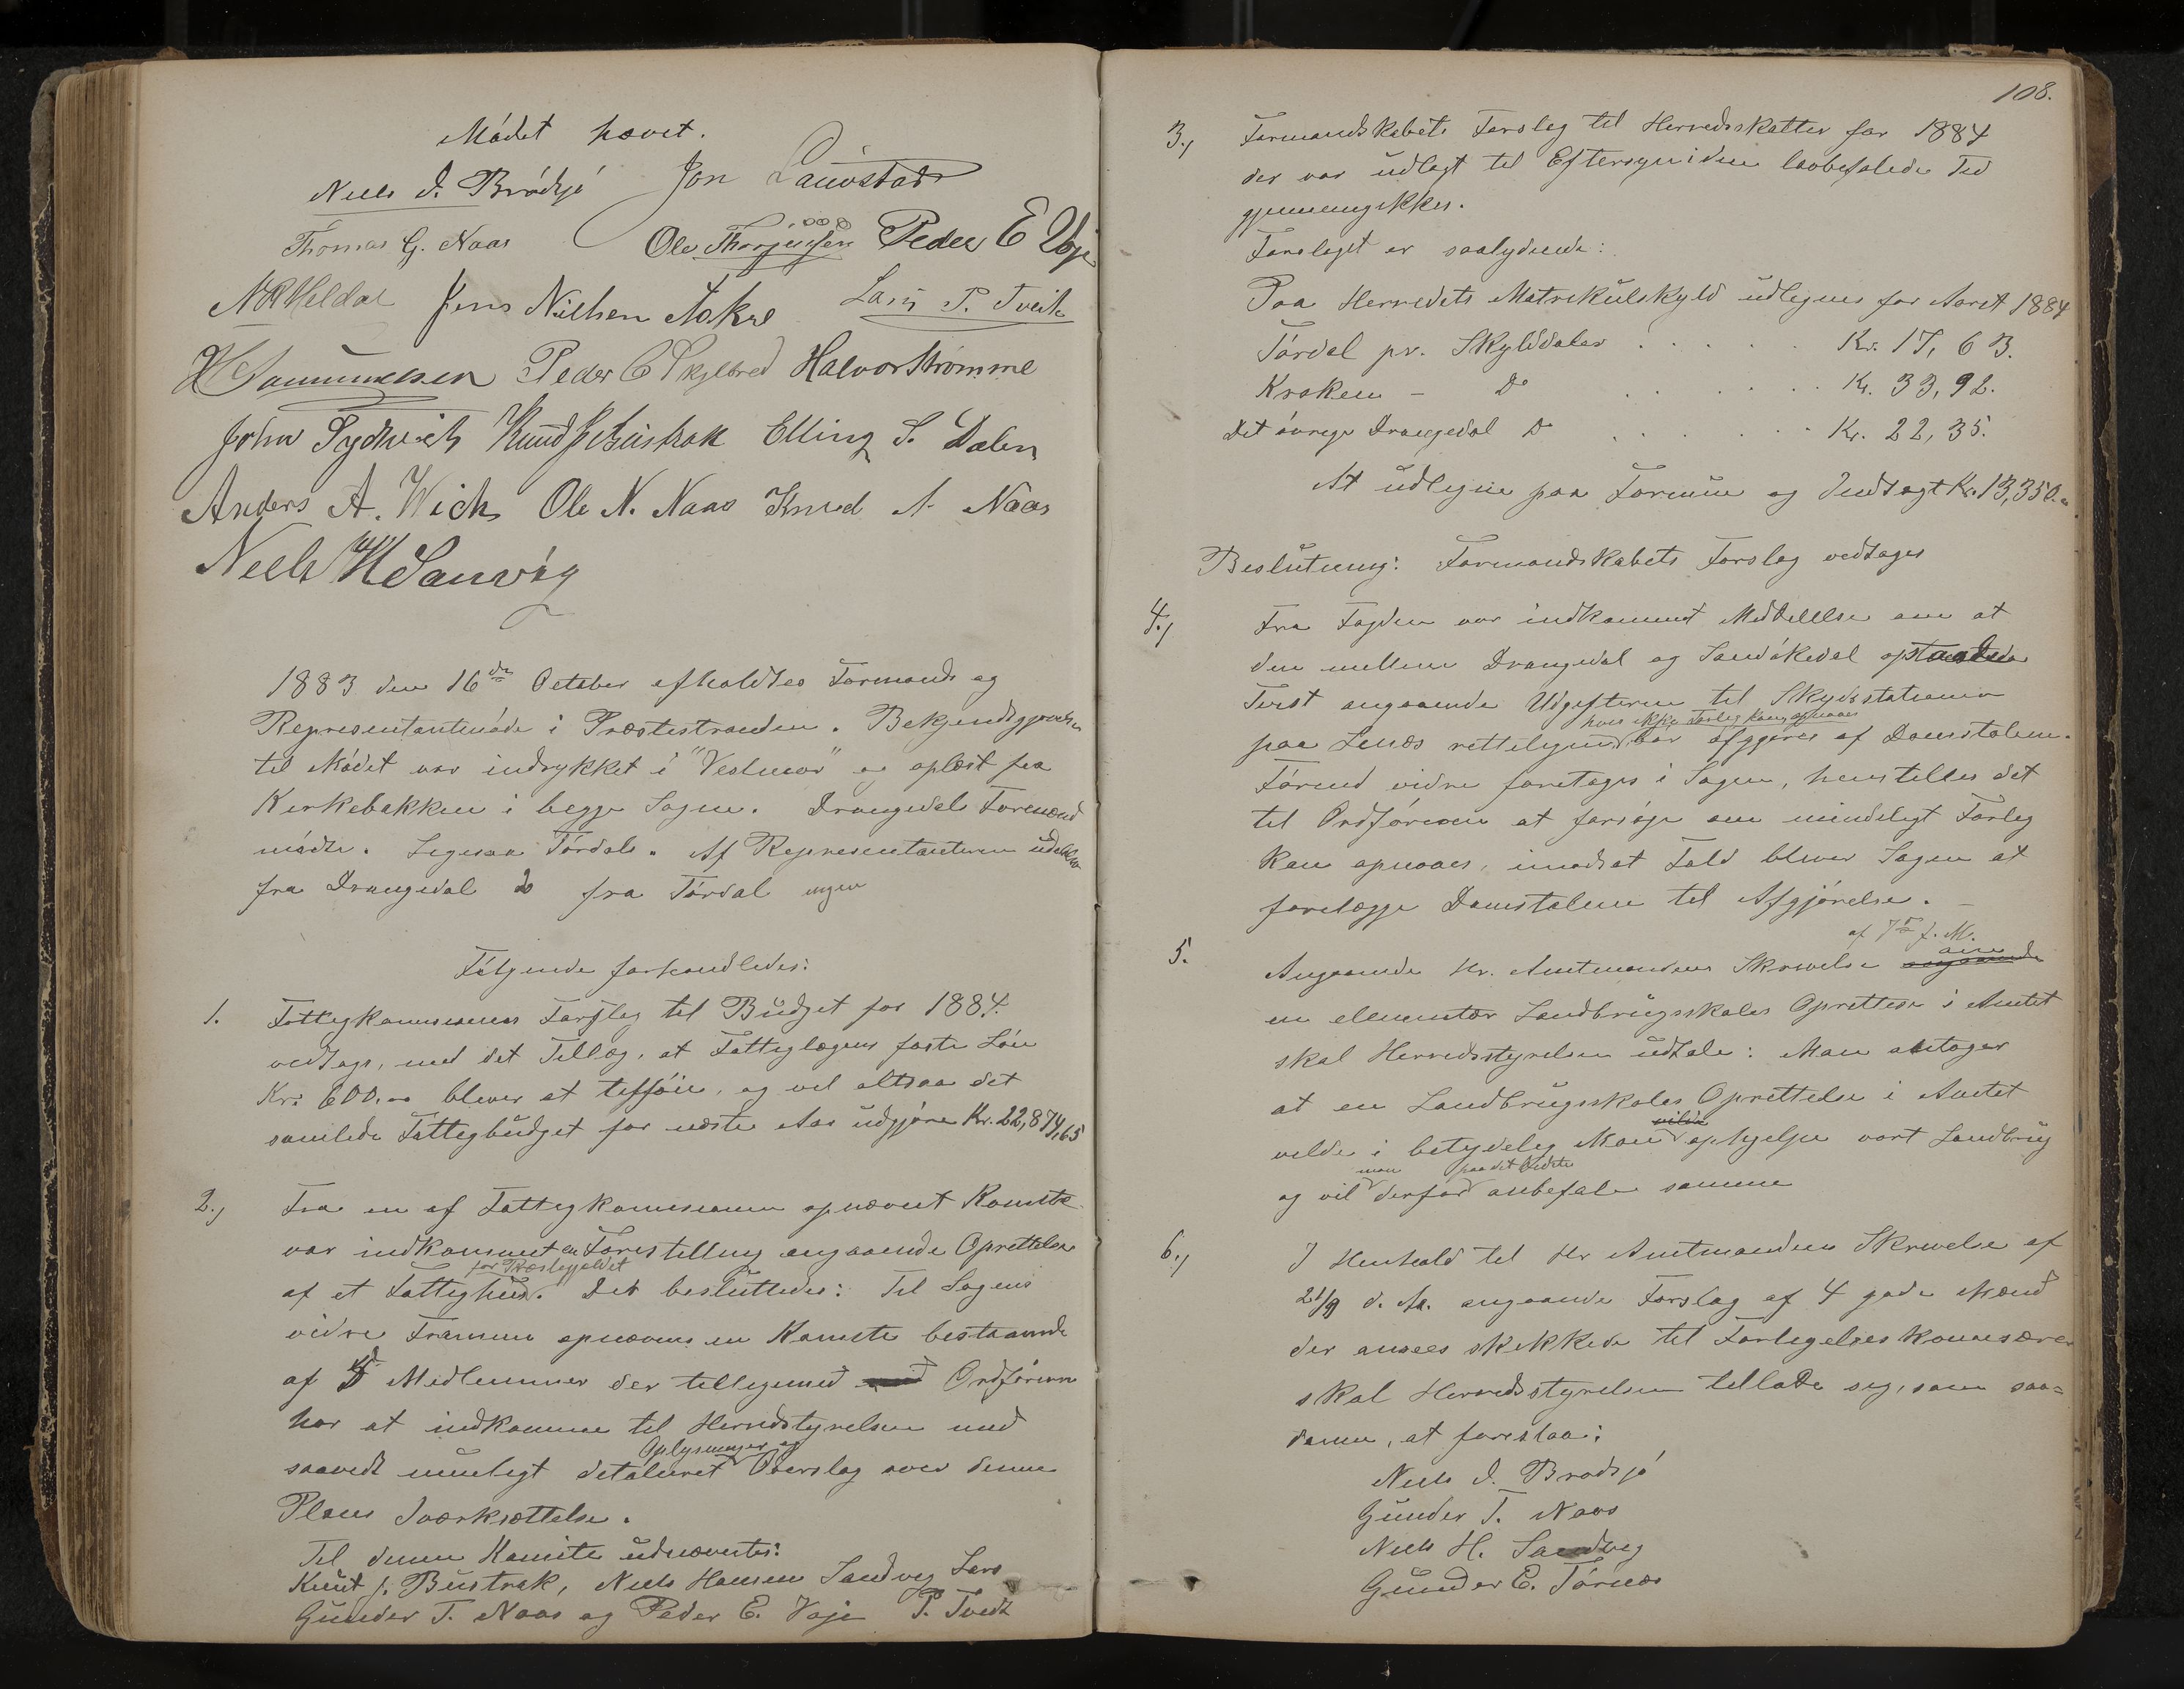 Mødet hævet.
Niels J. Brødsjø Jon Lauvstad
Thomas G. Naas Ole Thorjussen Peder E Voje
Jens Nielsen Aakre Lars P. Tveit
Peder C Skjelbred Halvor Strømme
John Knud J Bustrak Elling S. Dalen
Anders A. Wick Ole N. Naas Knud A. Naas
Niels H Sanvig
1883 den 16de October afholdtes Formands og
Representantmøde i Præstestranden. Bekjendtgjørelse
til Mødet var indrykket i "Vestmar" og oplæst fra
Kirkebakken i begge Sogne. Drangedals Formænd
mødte. Ligesaa Tørdals. Af Representanterne udeblev
fra Drangedal 2 fra Tørdal ingen
Følgende forhandledes:
1. Fattigkommisionens Forslag til Budget for 1884
vedtages, med det Tillæg, at Fattiglægens faste Løn
Kr. 600.00 bliver at tilføie, og vil altsaa det
samlede Fattigbudget for næste Aar udgjøre Kr. 22,874,65
2., Fra en af Fattigkommisionen opnævnt Komite
var indkommet en Forestilling angaaende Oprettelse
for Præstegjeldet
af et Fattighus. Det besluttedes: Til Sagens
vidre Fremme opnævnes en Komite bestaaende
af 5 Medlemmer der tilligemed med Ordføreren
har at indkomme til Herredstyrelsen med
Oplysninger og
saavidt mueligt detaleret Overslag over denne
Plans Iværksættelse.
Til denne Komite udnævntes:
Knut J. Bustrak, Niels Hansen Sandvig Lars
Gunder T. Naas og Peder E. Voje P. Tvedt
108.
3., Formandskabets Forslag til Herredsskatter for 1884
der var udlagt til Eftersyn i den lovbefalede Tid
gjennemgikkes.
Forslaget er saalydende:
Paa Herredets Matrikulskyld udlignes for Aaret 1884
Tørdal pr. Skylddaler . . . . . Kr. 17,63.
Kroken - Do . . . . . Kr. 33,92.
Det øvrige Drangedal Do . . . . . Kr. 22,35.
At udligne paa Formue og Indtægt Kr. 13,350.
Beslutning: Formandskabets Forslag vedtages
4., Fra Fogden var indkommet Meddelelse om at
den mellem Drangedal og Sandøkedal opstaaede
Tvist angaaende Udgifterne til Skydsstationen
hvis ikke Forlig kan opnaaes
paa Lenæs rettelig bør afgjøres af Domstolene.
Førend vidre foretages i Sagen, henstilles det
til Ordføreren at forsøge om mindeligt Forlig
kan opnaaes, imodsat Fald bliver Sagen at
forelægge Domstolene til Afgjørelse.
af 7de f. M.
5. Angaaende Hr. Amtmandens Skrivelse angaaende
en elementær Landbrugsskoles Oprettese i Amtet
skal Herredsstyrelsen udtale: Man antager
at en Landbrugsskoles Oprettelse i Amtet
vilde
vilde i betydelig Mon ophjelpe vort Landbrug
man paa det bedste
og vil derfor anbefale samme
6., I Henhold til Hr Amtmandens Skrivelse af
21/9 d. Aa. angaaende Forslag af 4 gode Mænd
der ansees skikkede til Forligelseskommisærer
skal Herredsstyrelsen tillade sig, som saa=
danne, at foreslaa:
Niels J. Brødsjø
Gunder T. Naas
Niels H. Sandvig
Gunder E. Tørnes